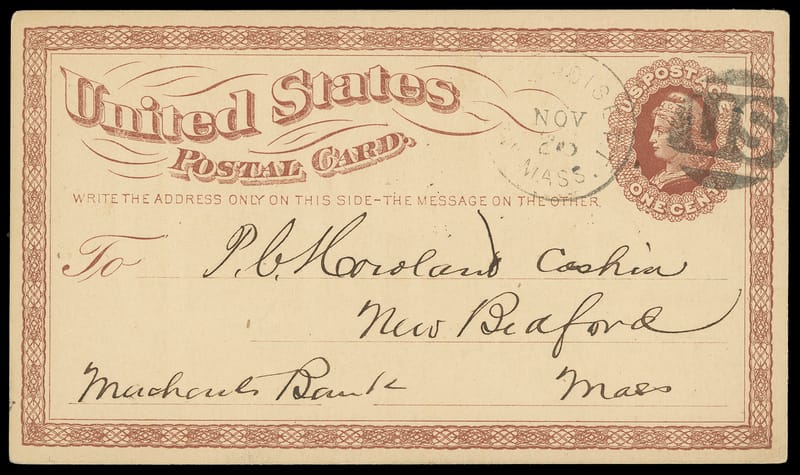 United States
POSTAL CARD.
WRITE THE ADDRESS ONLY ON THIS SIDE-THE MESSAGE ON THE OTHER
U.S. POSTAGE
ONE CENT
NOV
20
MASS.
US
To P. C. Howland Cashier
New Bedford
Merchants Bank Mass